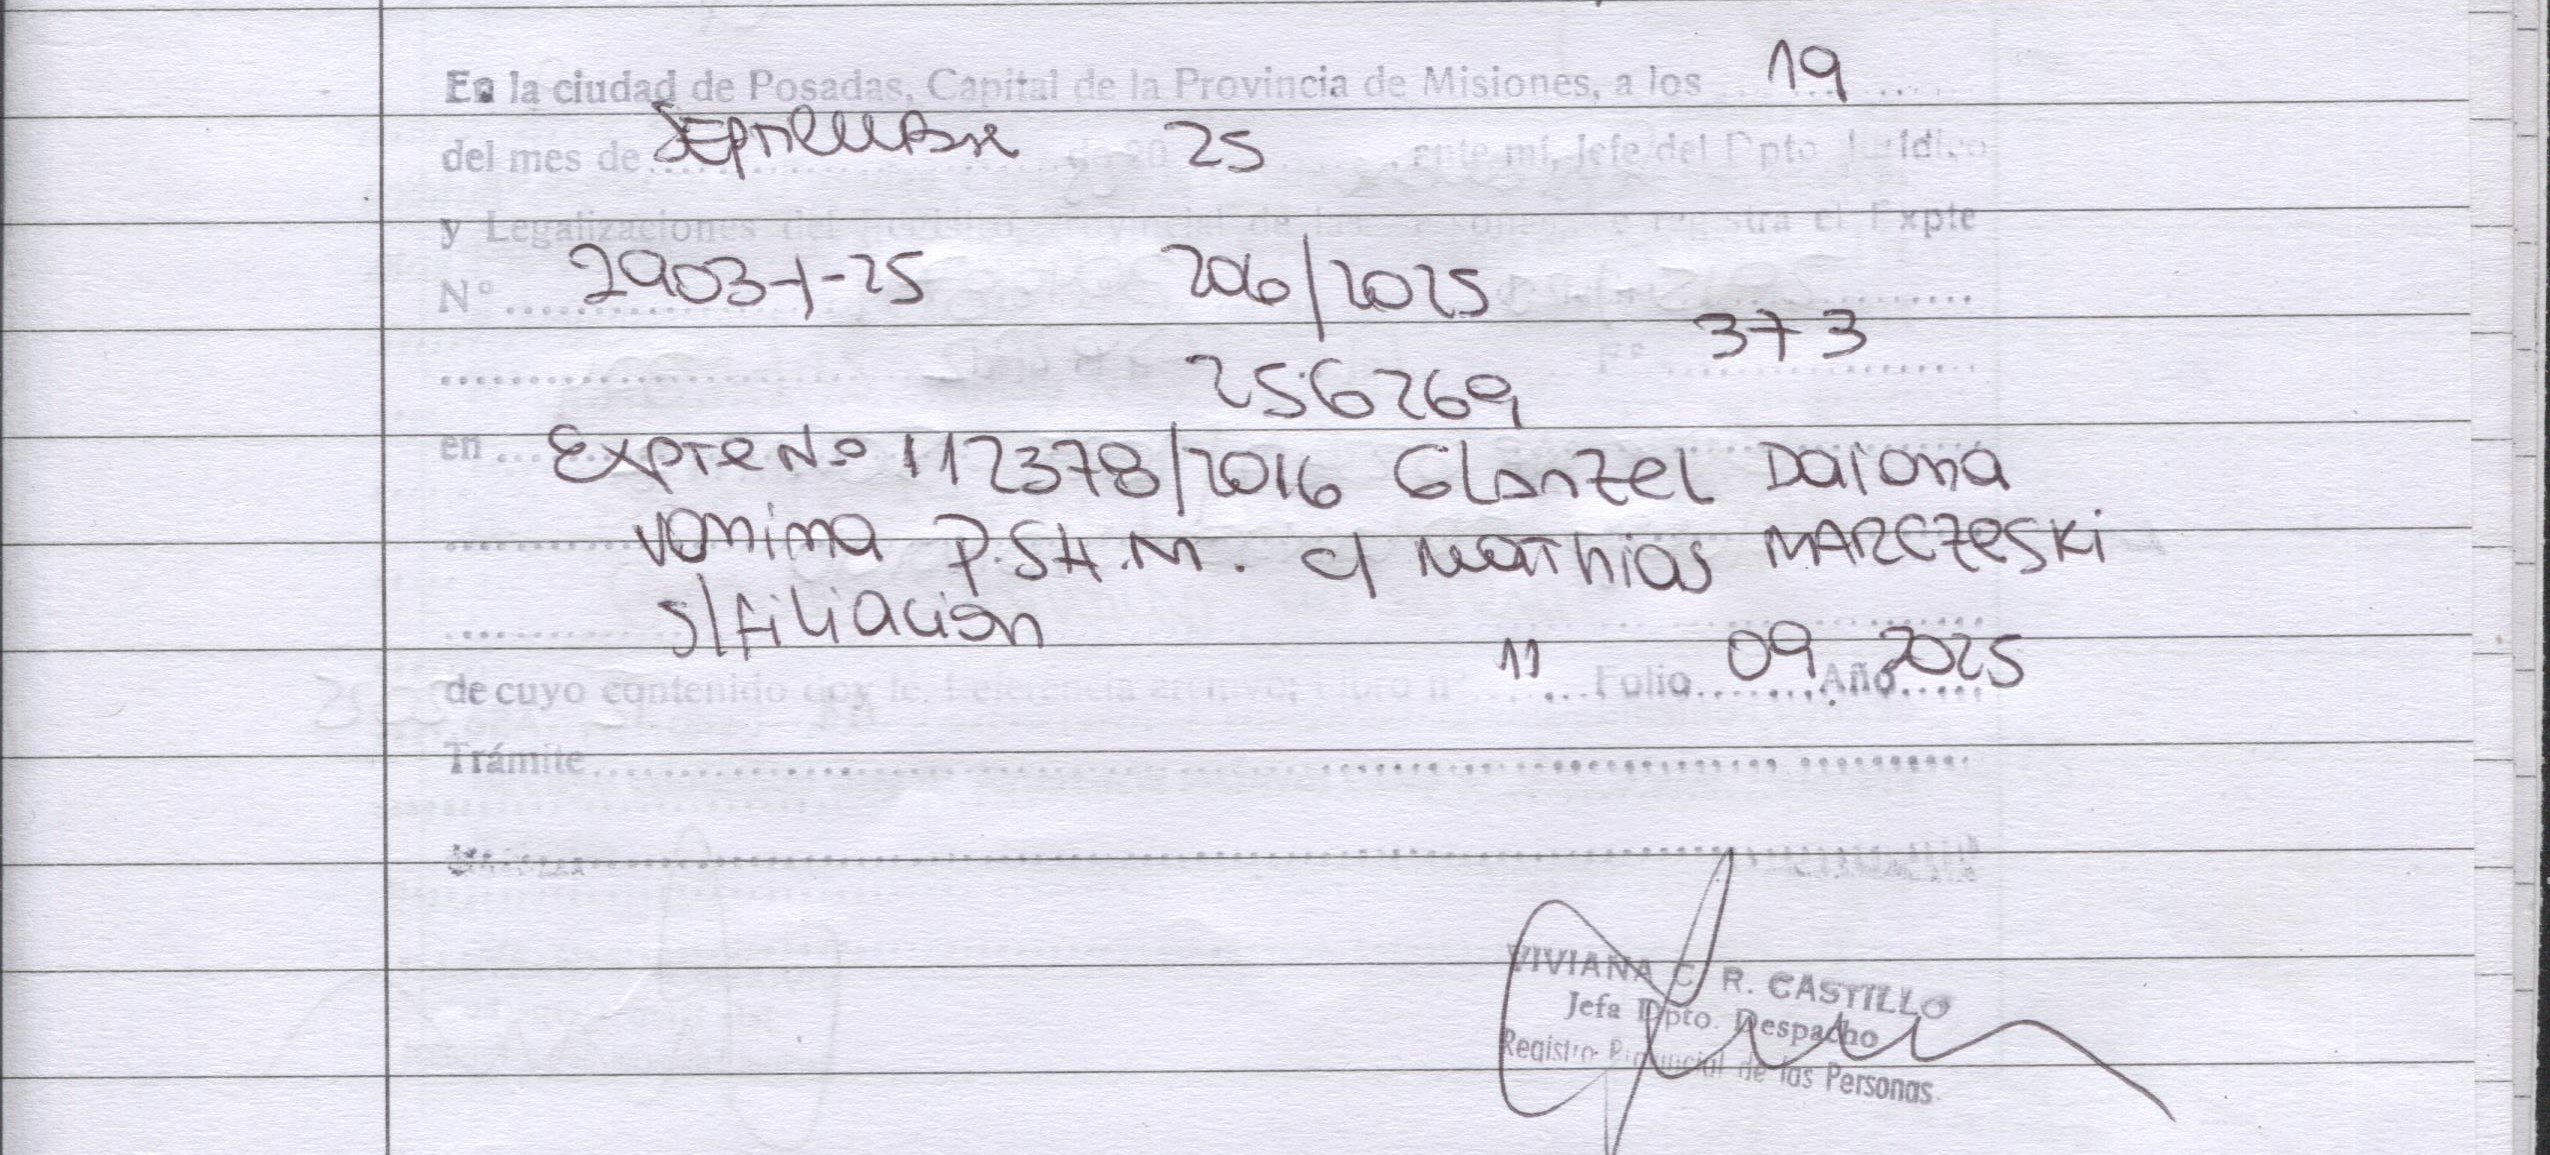 En la ciudad de Posadas, Capital de la Provincia de Misiones, a los 19
del mes de SEPTIEMBRE de 20 25, ante mí, Jefe del Dpto Jurídico
y Legalizaciones del Provincial de las registra el Expte
Nº 2903-1-25 206/2025
256269 Fº 373
en Expte Nº 112378/2016 Glanzel Daiana
Vanina P.S.H.M. c/ Mathias MARCZESKI
s/filiación
de cuyo contenido doy fe. Referencia archivo; Libro nº 11 Folio 09 Año 2025
Trámite
VIVIANA C. R. CASTILLO
Jefa Dpto. Despacho
Registro Provincial de las Personas